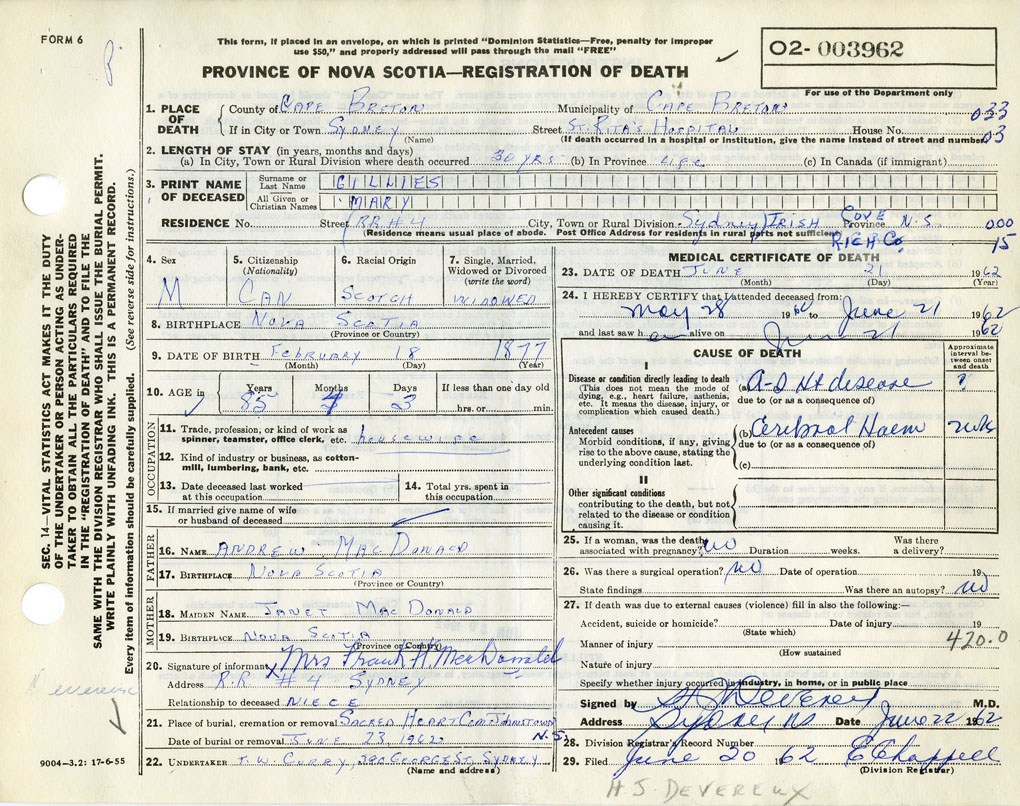 FORM 6
This form, if placed in an envelope, on which is printed "Dominion Statistics—Free, penalty for improper
use $50," and properly addressed will pass through the mail "FREE"
O2- 003962
PROVINCE OF NOVA SCOTIA—REGISTRATION OF DEATH
For use of the Department only
SEC. 14—VITAL STATISTICS ACT MAKES IT THE DUTY
OF THE UNDERTAKER OR PERSON ACTING AS UNDER-
TAKER TO OBTAIN ALL THE PARTICULARS REQUIRED
IN THE "REGISTRATION OF DEATH" AND TO FILE THE
SAME WITH THE DIVISION REGISTRAR WHO SHALL ISSUE THE BURIAL PERMIT.
WRITE PLAINLY WITH UNFADING INK. THIS IS A PERMANENT RECORD.
Every item of information should be carefully supplied. (See reverse side for instructions.)
1. PLACE OF DEATH
County of CAPE BRETON Municipality of CAPE BRETON 033
If in City or Town SYDNEY Street ST. RITA'S HOSPITAL House No. 03
(Name) (If death occurred in a hospital or institution, give the name instead of street and number.)
2. LENGTH OF STAY (in years, months and days)
(a) In City, Town or Rural Division where death occurred 30 YRS (b) In Province LIFE (c) In Canada (if immigrant)
3. PRINT NAME OF DECEASED
Surname or Last Name GILLIES
All Given or Christian Names MARY
RESIDENCE No. Street RR #4 City, Town or Rural Division Sydney, IRISH COVE Province N.S 000
(Residence means usual place of abode. Post Office Address for residents in rural parts not sufficient) RICH Co. 15
4. Sex
5. Citizenship (Nationality)
6. Racial Origin
7. Single, Married, Widowed or Divorced (write the word)
M CAN SCOTCH WIDOWED
8. BIRTHPLACE NOVA SCOTIA
(Province or Country)
9. DATE OF BIRTH February 18 1877
(Month) (Day) (Year)
10. AGE in Years Months Days If less than one day old
85 4 3 hrs. or min.
OCCUPATION
11. Trade, profession, or kind of work as spinner, teamster, office clerk, etc. housewife
12. Kind of industry or business, as cotton-mill, lumbering, bank, etc.
13. Date deceased last worked at this occupation
14. Total yrs. spent in this occupation
15. If married give name of wife or husband of deceased
FATHER
16. NAME ANDREW MACDONALD
17. BIRTHPLACE NOVA SCOTIA
(Province or Country)
MOTHER
18. MAIDEN NAME JANET MACDONALD
19. BIRTHPLACE NOVA SCOTIA
(Province or Country)
20. Signature of informant Mrs Frank H. MacDonald
Address R.R. #4 SYDNEY
Relationship to deceased NIECE
21. Place of burial, cremation or removal SACRED HEART CEM. JOHNSTOWN N.S.
Date of burial or removal JUNE 23, 1962
22. UNDERTAKER T.W. CURRY, 390 GEORGE ST, SYDNEY
(Name and address)
9004-3.2: 17-6-55
MEDICAL CERTIFICATE OF DEATH
23. DATE OF DEATH JUNE 21 1962
(Month) (Day) (Year)
24. I HEREBY CERTIFY that I attended deceased from:
May 28 1960 to June 21 1962
and last saw her alive on June 21 1962
CAUSE OF DEATH
Approximate interval between onset and death
I
Disease or condition directly leading to death
(This does not mean the mode of dying, e.g., heart failure, asthenia, etc. It means the disease, injury, or complication which caused death.)
(a) A-S Ht disease ?
due to (or as a consequence of)
Antecedent causes
Morbid conditions, if any, giving rise to the above cause, stating the underlying condition last.
(b) Cerebral Haem 2 wks
due to (or as a consequence of)
(c)
II
Other significant conditions
contributing to the death, but not related to the disease or condition causing it.
25. If a woman, was the death associated with pregnancy? no Duration weeks. Was there a delivery?
26. Was there a surgical operation? no Date of operation 19
State findings Was there an autopsy? no
27. If death was due to external causes (violence) fill in also the following:—
Accident, suicide or homicide? Date of injury 19
(State which) 420.0
Manner of injury
(How sustained
Nature of injury
Specify whether injury occurred in industry, in home, or in public place
Signed by H S Devereux M.D.
Address Sydney NS Date June 22 1962
28. Division Registrar's Record Number
29. Filed June 20 1962 E Chappell
(Division Registrar)
H.S. DEVEREUX